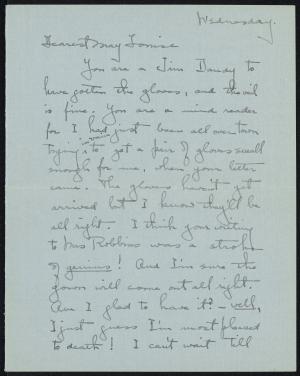 Wednesday.
Dearest May Louise
You are a Jim Dandy to
have gotten the gloves, and the veil
is fine. You are a mind reader
for I had just been all over town
trying to get a pair of gloves small
enough for me, when your letter
came. The gloves haven't yet
arrived but I know they'll be
all right. I think your writing
to Mrs Robbins was a stroke
of genius! And I'm sure the
gown will come out all right.
Am I glad to have it? - well,
I just guess I'm most pleased
to death! I can't wait till